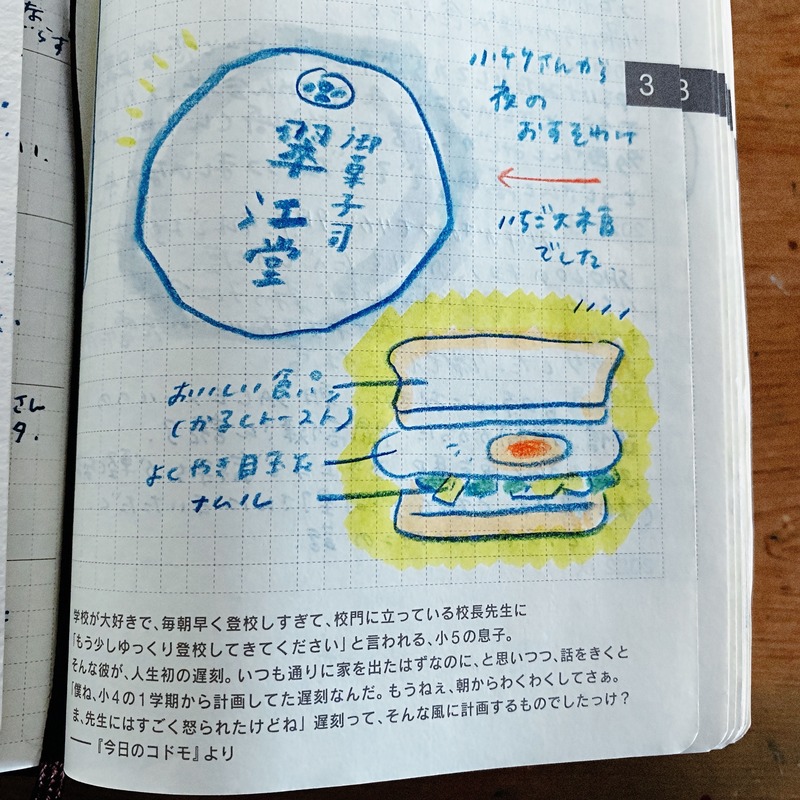 小竹さんから
夜の
おすそわけ
いちご大福
でした
御菓子司
翠江堂
3
おいしい食パン
(かるくトースト)
よくやき目玉
ナムル
学校が大好きで、毎朝早く登校しすぎて、校門に立っている校長先生に
「もう少しゆっくり登校してきてください」と言われる、小5の息子。
そんな彼が、人生初の遅刻。いつも通りに家を出たはずなのに、と思いつつ、話をきくと
「僕ね、小4の1学期から計画してた遅刻なんだ。もうねぇ、朝からわくわくしてさぁ。
ま、先生にはすごく怒られたけどね」遅刻って、そんな風に計画するものでしたっけ？
──『今日のコドモ』より